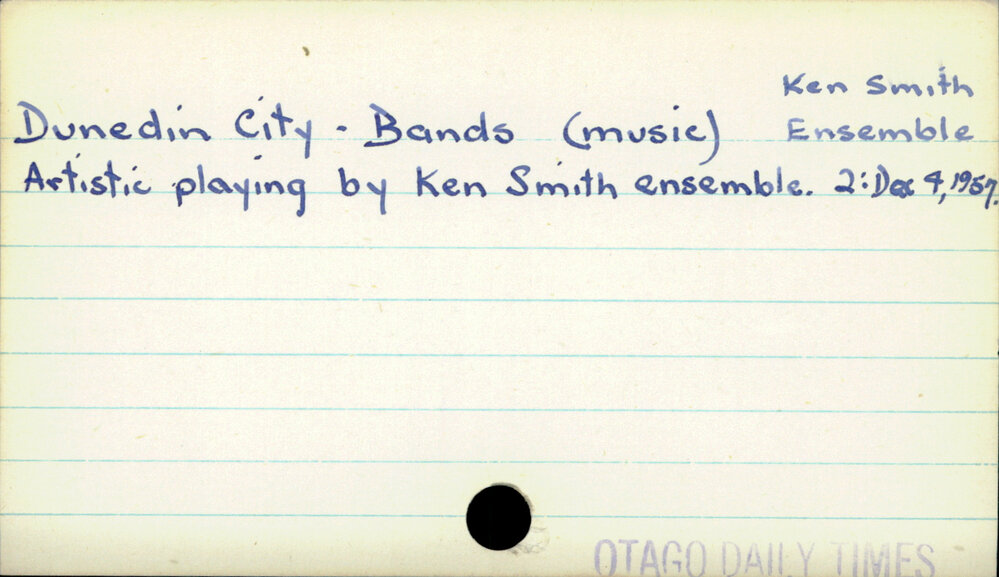 Ken Smith
Dunedin City - Bands (music) Ensemble
Artistic playing by Ken Smith ensemble. 2: Dec 4, 1957.
OTAGO DAILY TIMES